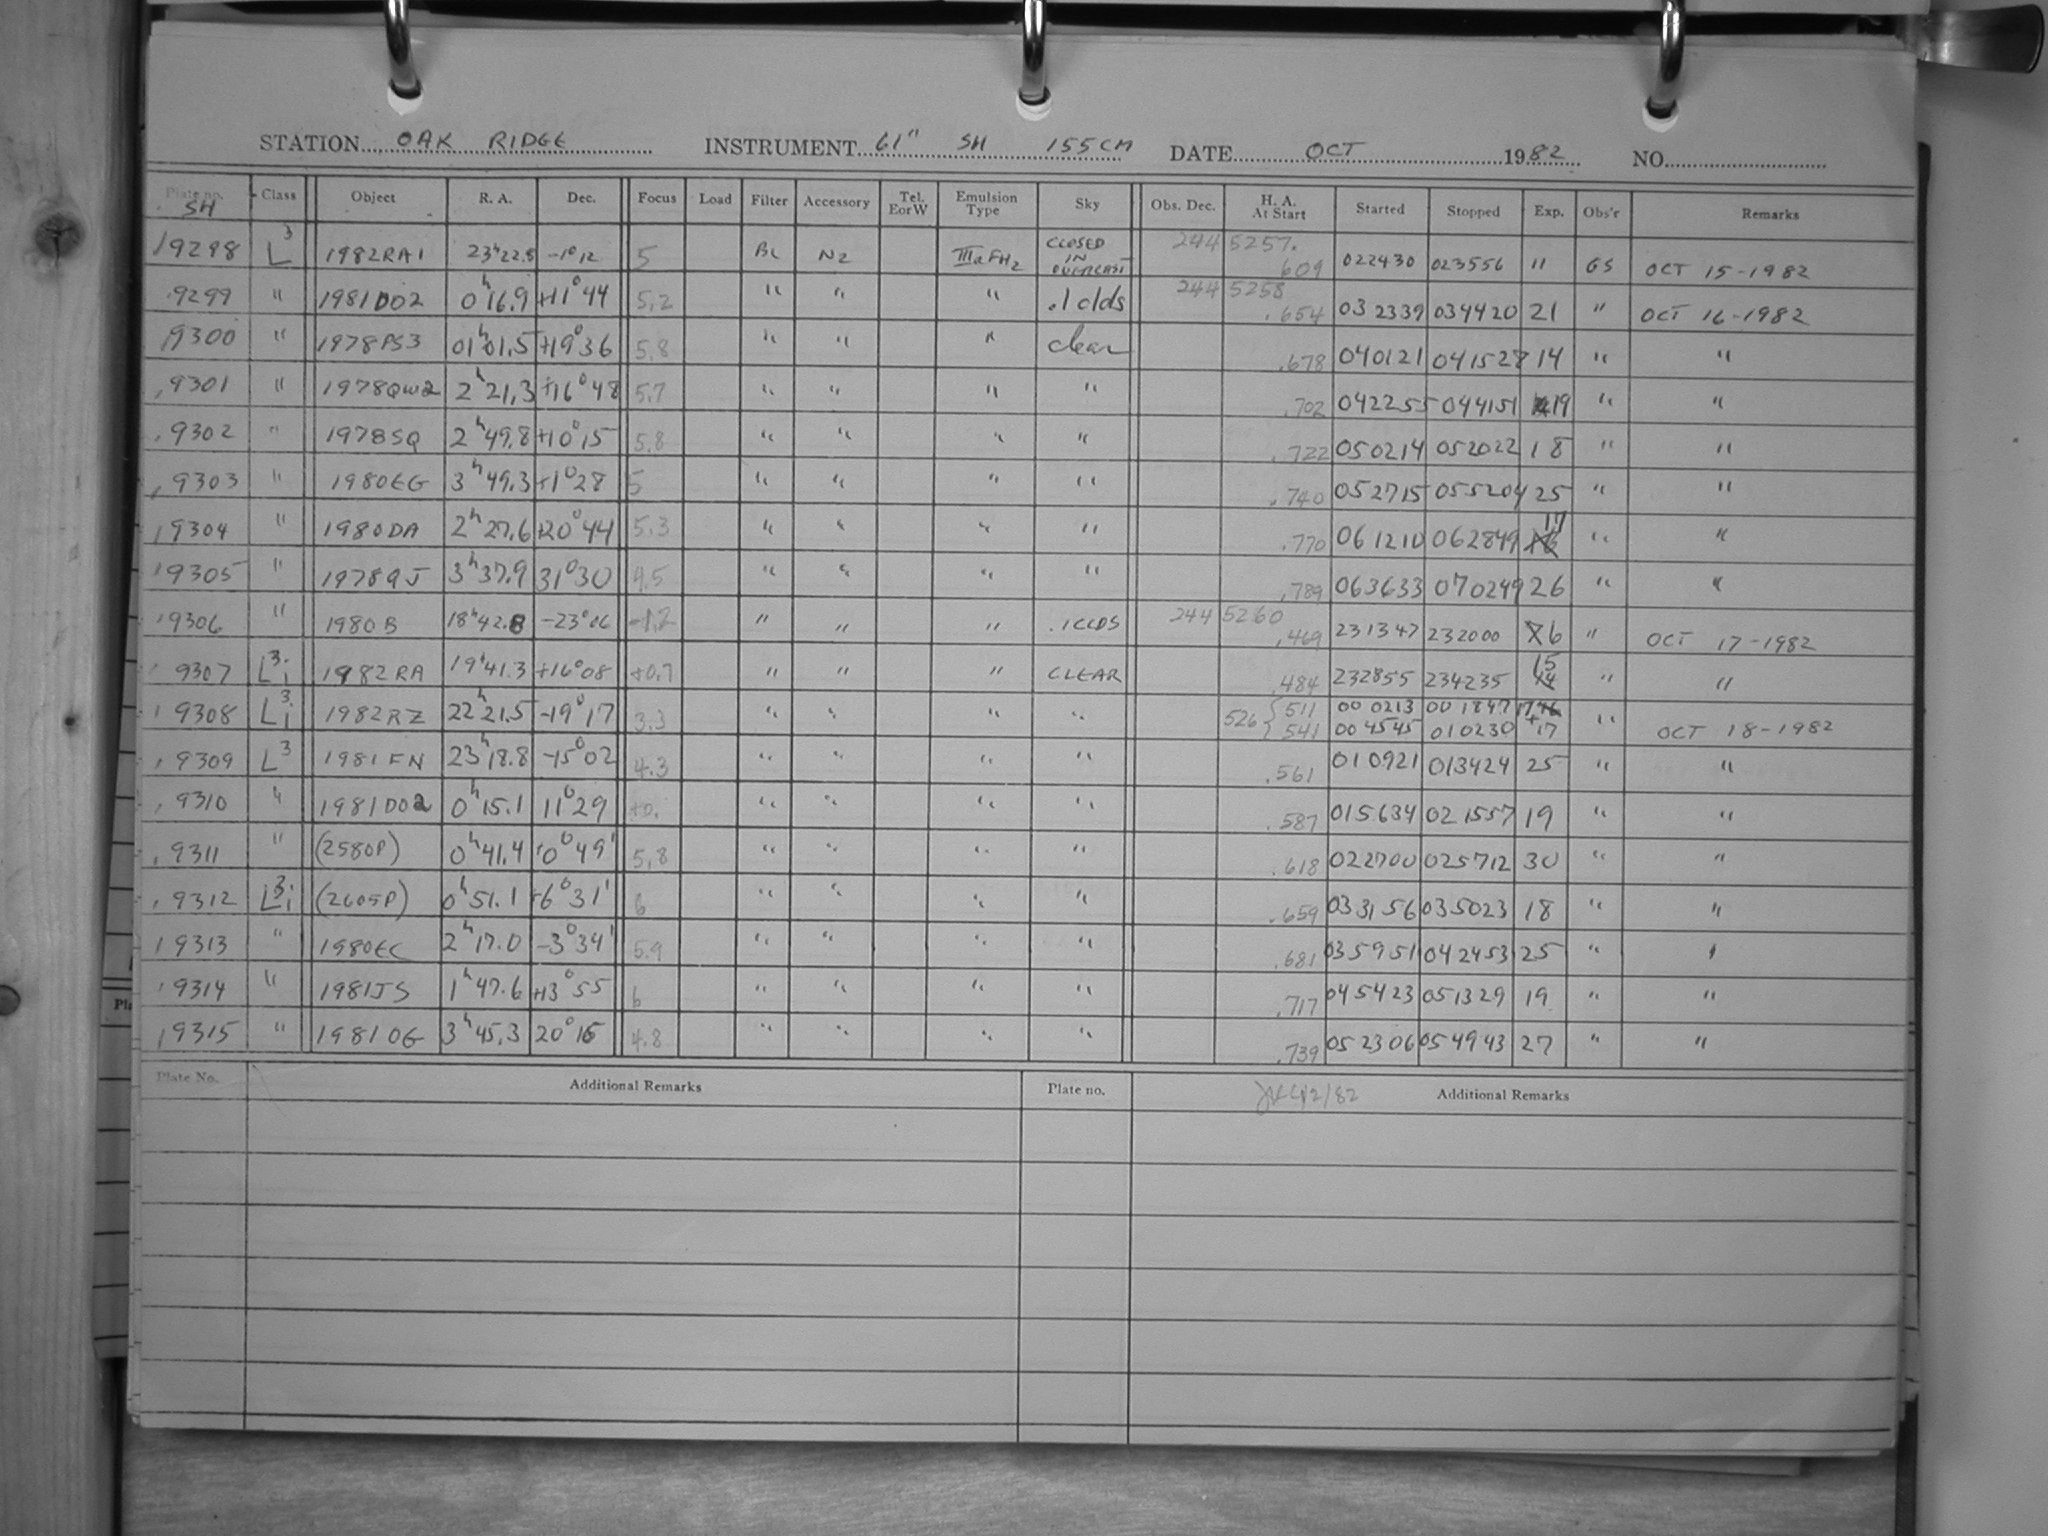 STATION OAK RIDGE INSTRUMENT 61" SH 155CM DATE OCT 1982 NO.
Plate no. SH Class Object R. A. Dec. Focus Load Filter Accessory Tel. EorW Emulsion Type Sky Obs. Dec. H. A. At Start Started Stopped Exp. Obs'r Remarks
19298 L3 1982RA1 23h22.8 -1°12 5 BL N2 IIIaFH2 CLOSED IN OVERCAST 244 5257. 609 022430 023556 11 GS OCT 15-1982
.9299 " 1981DO2 0h16.9 +11°44 5.2 " " " .1 clds 244 5258 .654 032339 034420 21 " OCT 16-1982
19300 " 1978PS3 01h01.5 +19°36 5.8 " " " clear .678 040121 041528 14 " "
.9301 " 1978QW2 2h21.3 +16°48 5.7 " " " " .702 042255 044151 19 " "
.9302 " 1978SQ 2h49.8 +10°15 5.8 " " " " .722 050214 052022 18 " "
,9303 " 1980EG 3h49.3 +1°28 5 " " " " .740 052715 055204 25 " "
,9304 " 1980DA 2h27.6 +20°44 5.3 " " " " .770 061210 062849 17 " "
'9305 " 1978QJ 3h37.9 31°30 4.5 " " " " .789 063633 070249 26 " "
'9306 " 1980B 18h42.8 -23°06 -1.2 " " " .1CLDS 244 5260 .469 231347 232000 6 " OCT 17-1982
' 9307 L3i 1982RA 19h41.3 +16°08 +0.7 " " " CLEAR .484 232855 234235 15 " "
' 9308 L3i 1982RZ 22h21.5 -19°17 3.3 " " " " 526 { 511 000213 001847 17
541 004545 010230 +17 " OCT 18-1982
, 9309 L3 1981FN 23h18.8 -15°02 4.3 " " " " .561 010921 013424 25 " "
, 9310 " 1981DO2 0h15.1 11°29 +0. " " " " .587 015634 021557 19 " "
, 9311 " (2580P) 0h41.4 0°49' 5.8 " " " " .618 022700 025712 30 " "
, 9312 L3i (2605P) 0h51.1 +6°31' 6 " " " " .659 033156 035023 18 " "
19313 " 1980EC 2h17.0 -3°34' 5.9 " " " " .681 035951 042453 25 " "
'9314 " 1981JS 1h47.6 +13°55 6 " " " " .717 045423 051329 19 " "
,9315 " 1981OG 3h45.3 20°16 4.8 " " " " .739 052306 054943 27 " "
Plate No. Additional Remarks Plate no. 12/82 Additional Remarks